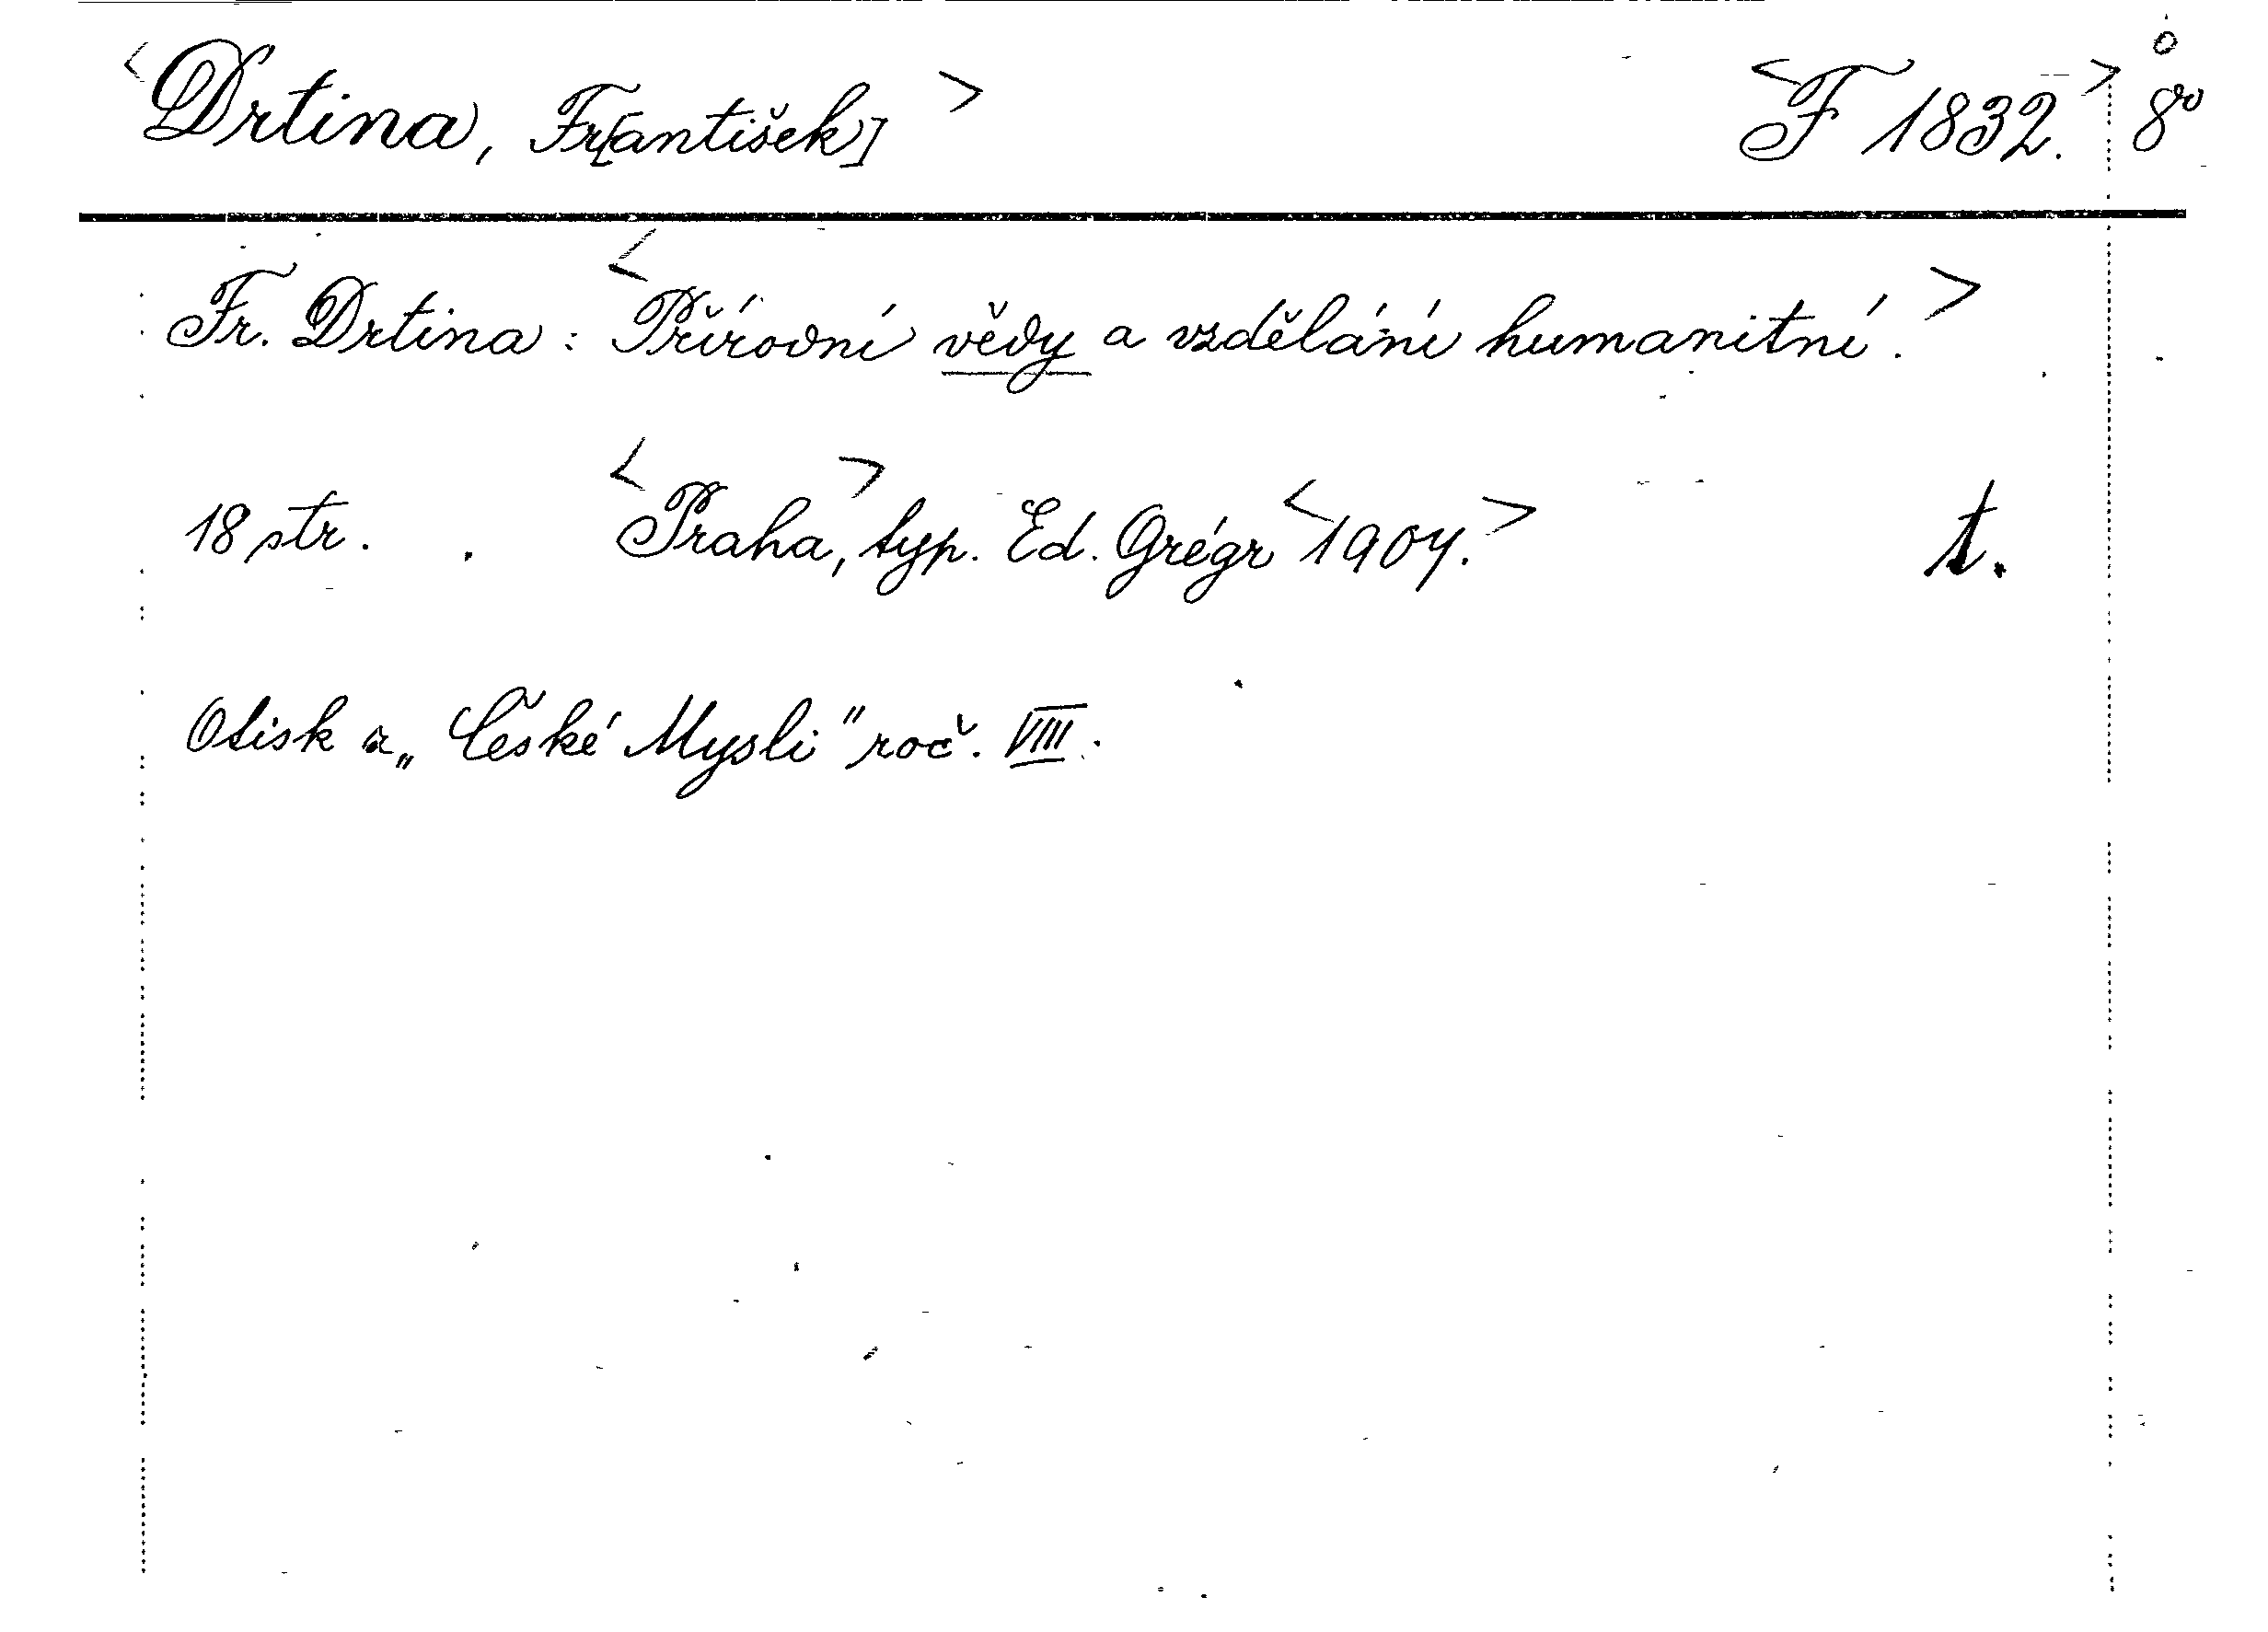 <Drtina, Fr[antišek]> <F 1832.> 8°
Fr. Drtina: <Přírodní vědy a vzdělání humanitní.>
18 str. . <Praha>, typ. Ed. Grégr <1907.> t.
Otisk z „České Mysli" roč. VIII.